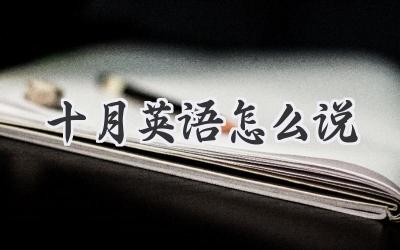 十月英语怎么说